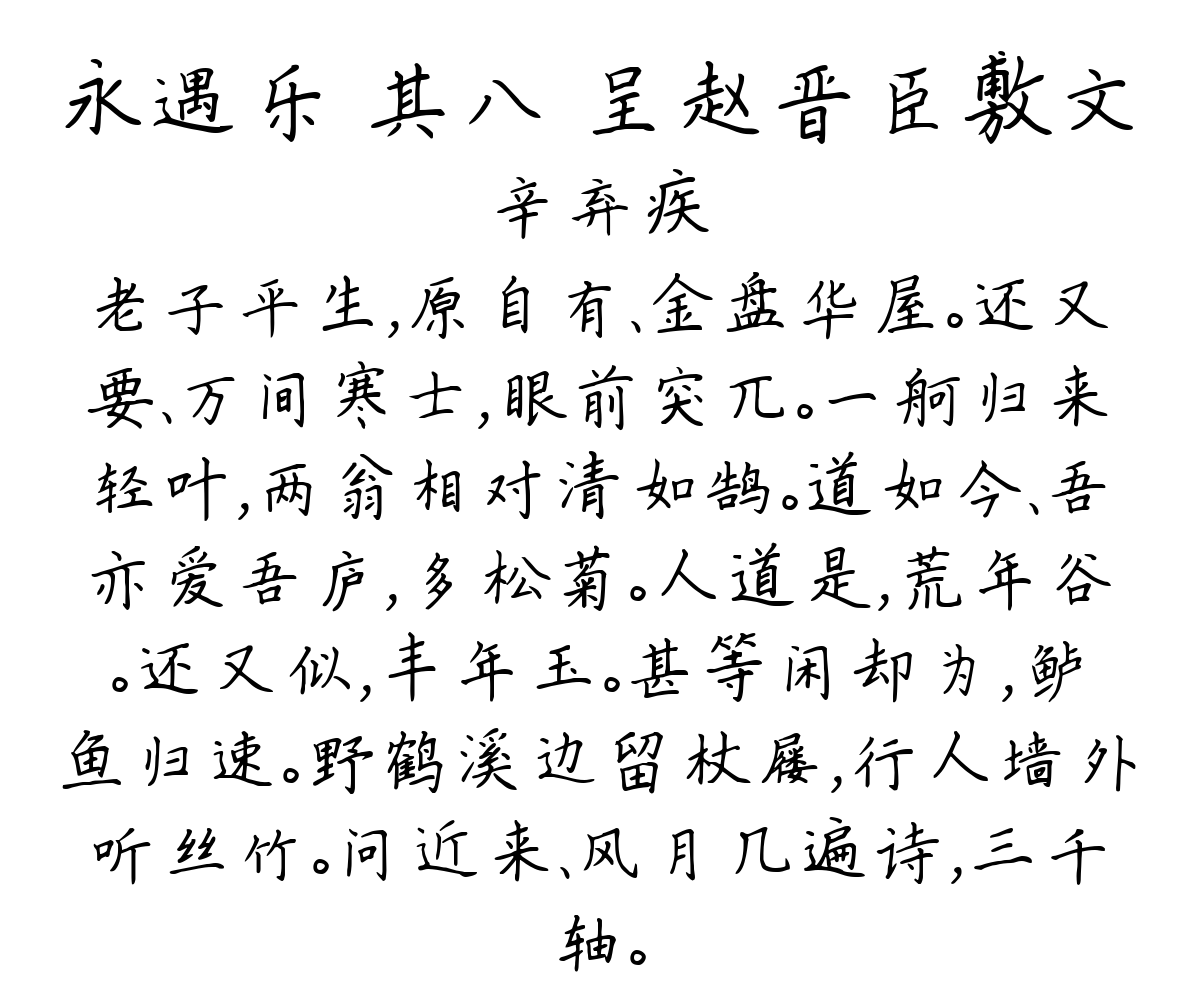 永遇乐 其八 呈赵晋臣敷文
辛弃疾
老子平生,原自有、金盘华屋。还又
要、万间寒士,眼前突兀。一舸归来
轻叶,两翁相对清如鹄。道如今、吾
亦爱吾庐,多松菊。人道是,荒年谷
。还又似,丰年玉。甚等闲却为,鲈
鱼归速。野鹤溪边留杖屦,行人墙外
听丝竹。问近来、风月几遍诗,三千
轴。